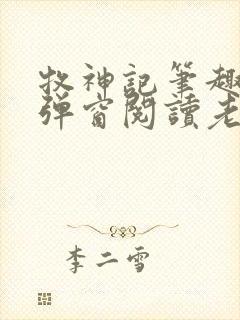 牧神記筆趣
彈窗閱讀老
李二雪